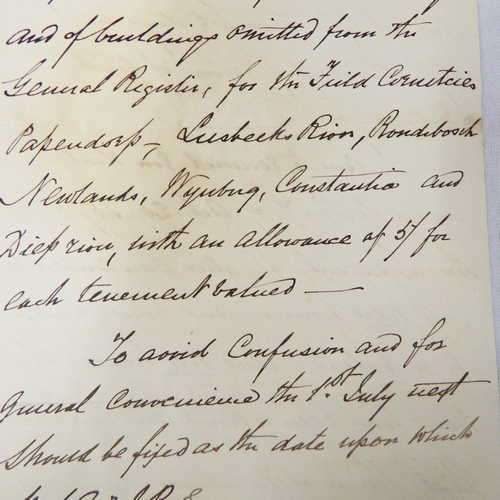 and of buildings omitted from the
General Register, for the Field Cornetcies
Papendorp, Leisbecks River, Rondebosch
Newlands, Wynberg, Constantia and
Diep river, with an allowance of 5/ for
each tenement valued —
To avoid Confusion and for
General Convenience the 1st July next
should be fixed as the date upon which